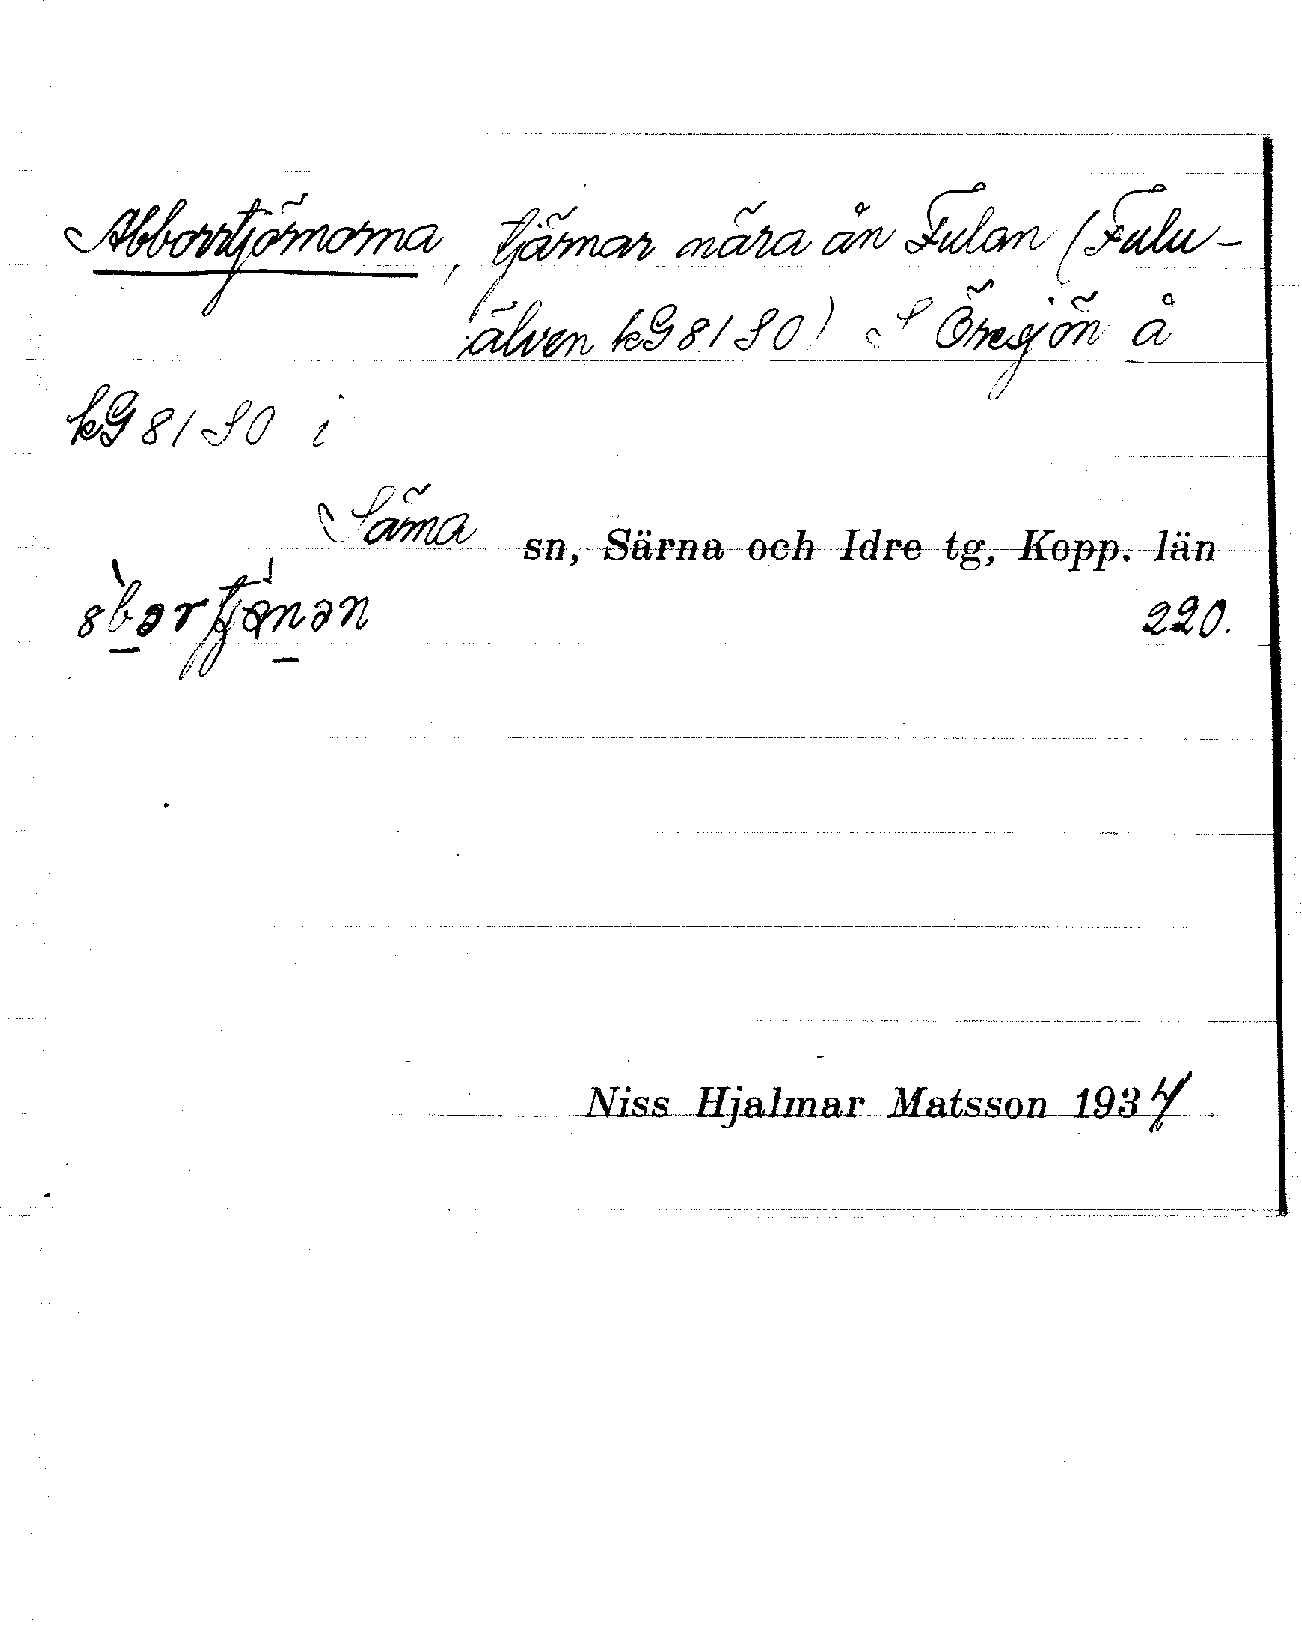 Abborrtjärnorna, tjärnar nära ån Fulan (Fulu-
älven kG 81 SO) S Öresjön å
kG 81 SO i
Särna sn, Särna och Idre tg, Kopp. län
220.
Niss Hjalmar Matsson 1934